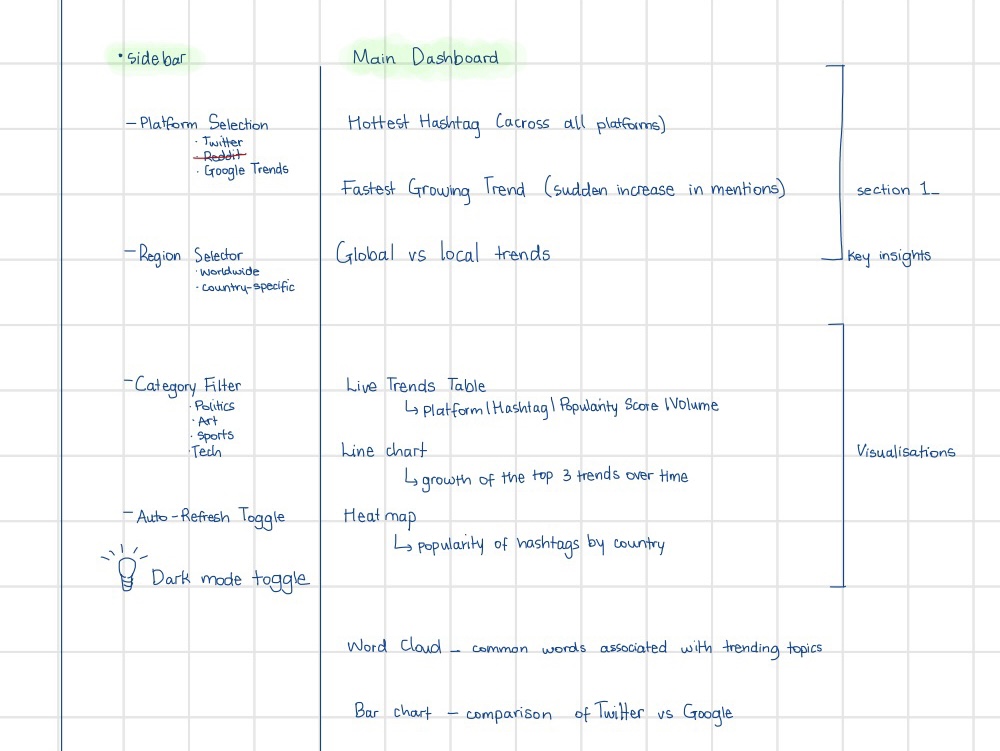 • sidebar
– Platform Selection
· Twitter
· Reddit
· Google Trends
– Region Selector
· Worldwide
· country-specific
– Category Filter
· Politics
· Art
· Sports
· Tech
– Auto-Refresh Toggle
Dark mode toggle
Main Dashboard
Hottest Hashtag (across all platforms)
Fastest Growing Trend (sudden increase in mentions)
Global vs local trends
section 1_
key insights
Live Trends Table
↳ Platform | Hashtag | Popularity Score | Volume
Line chart
↳ growth of the top 3 trends over time
Heat map
↳ popularity of hashtags by country
Visualisations
Word Cloud – common words associated with trending topics
Bar chart – comparison of Twitter vs Google